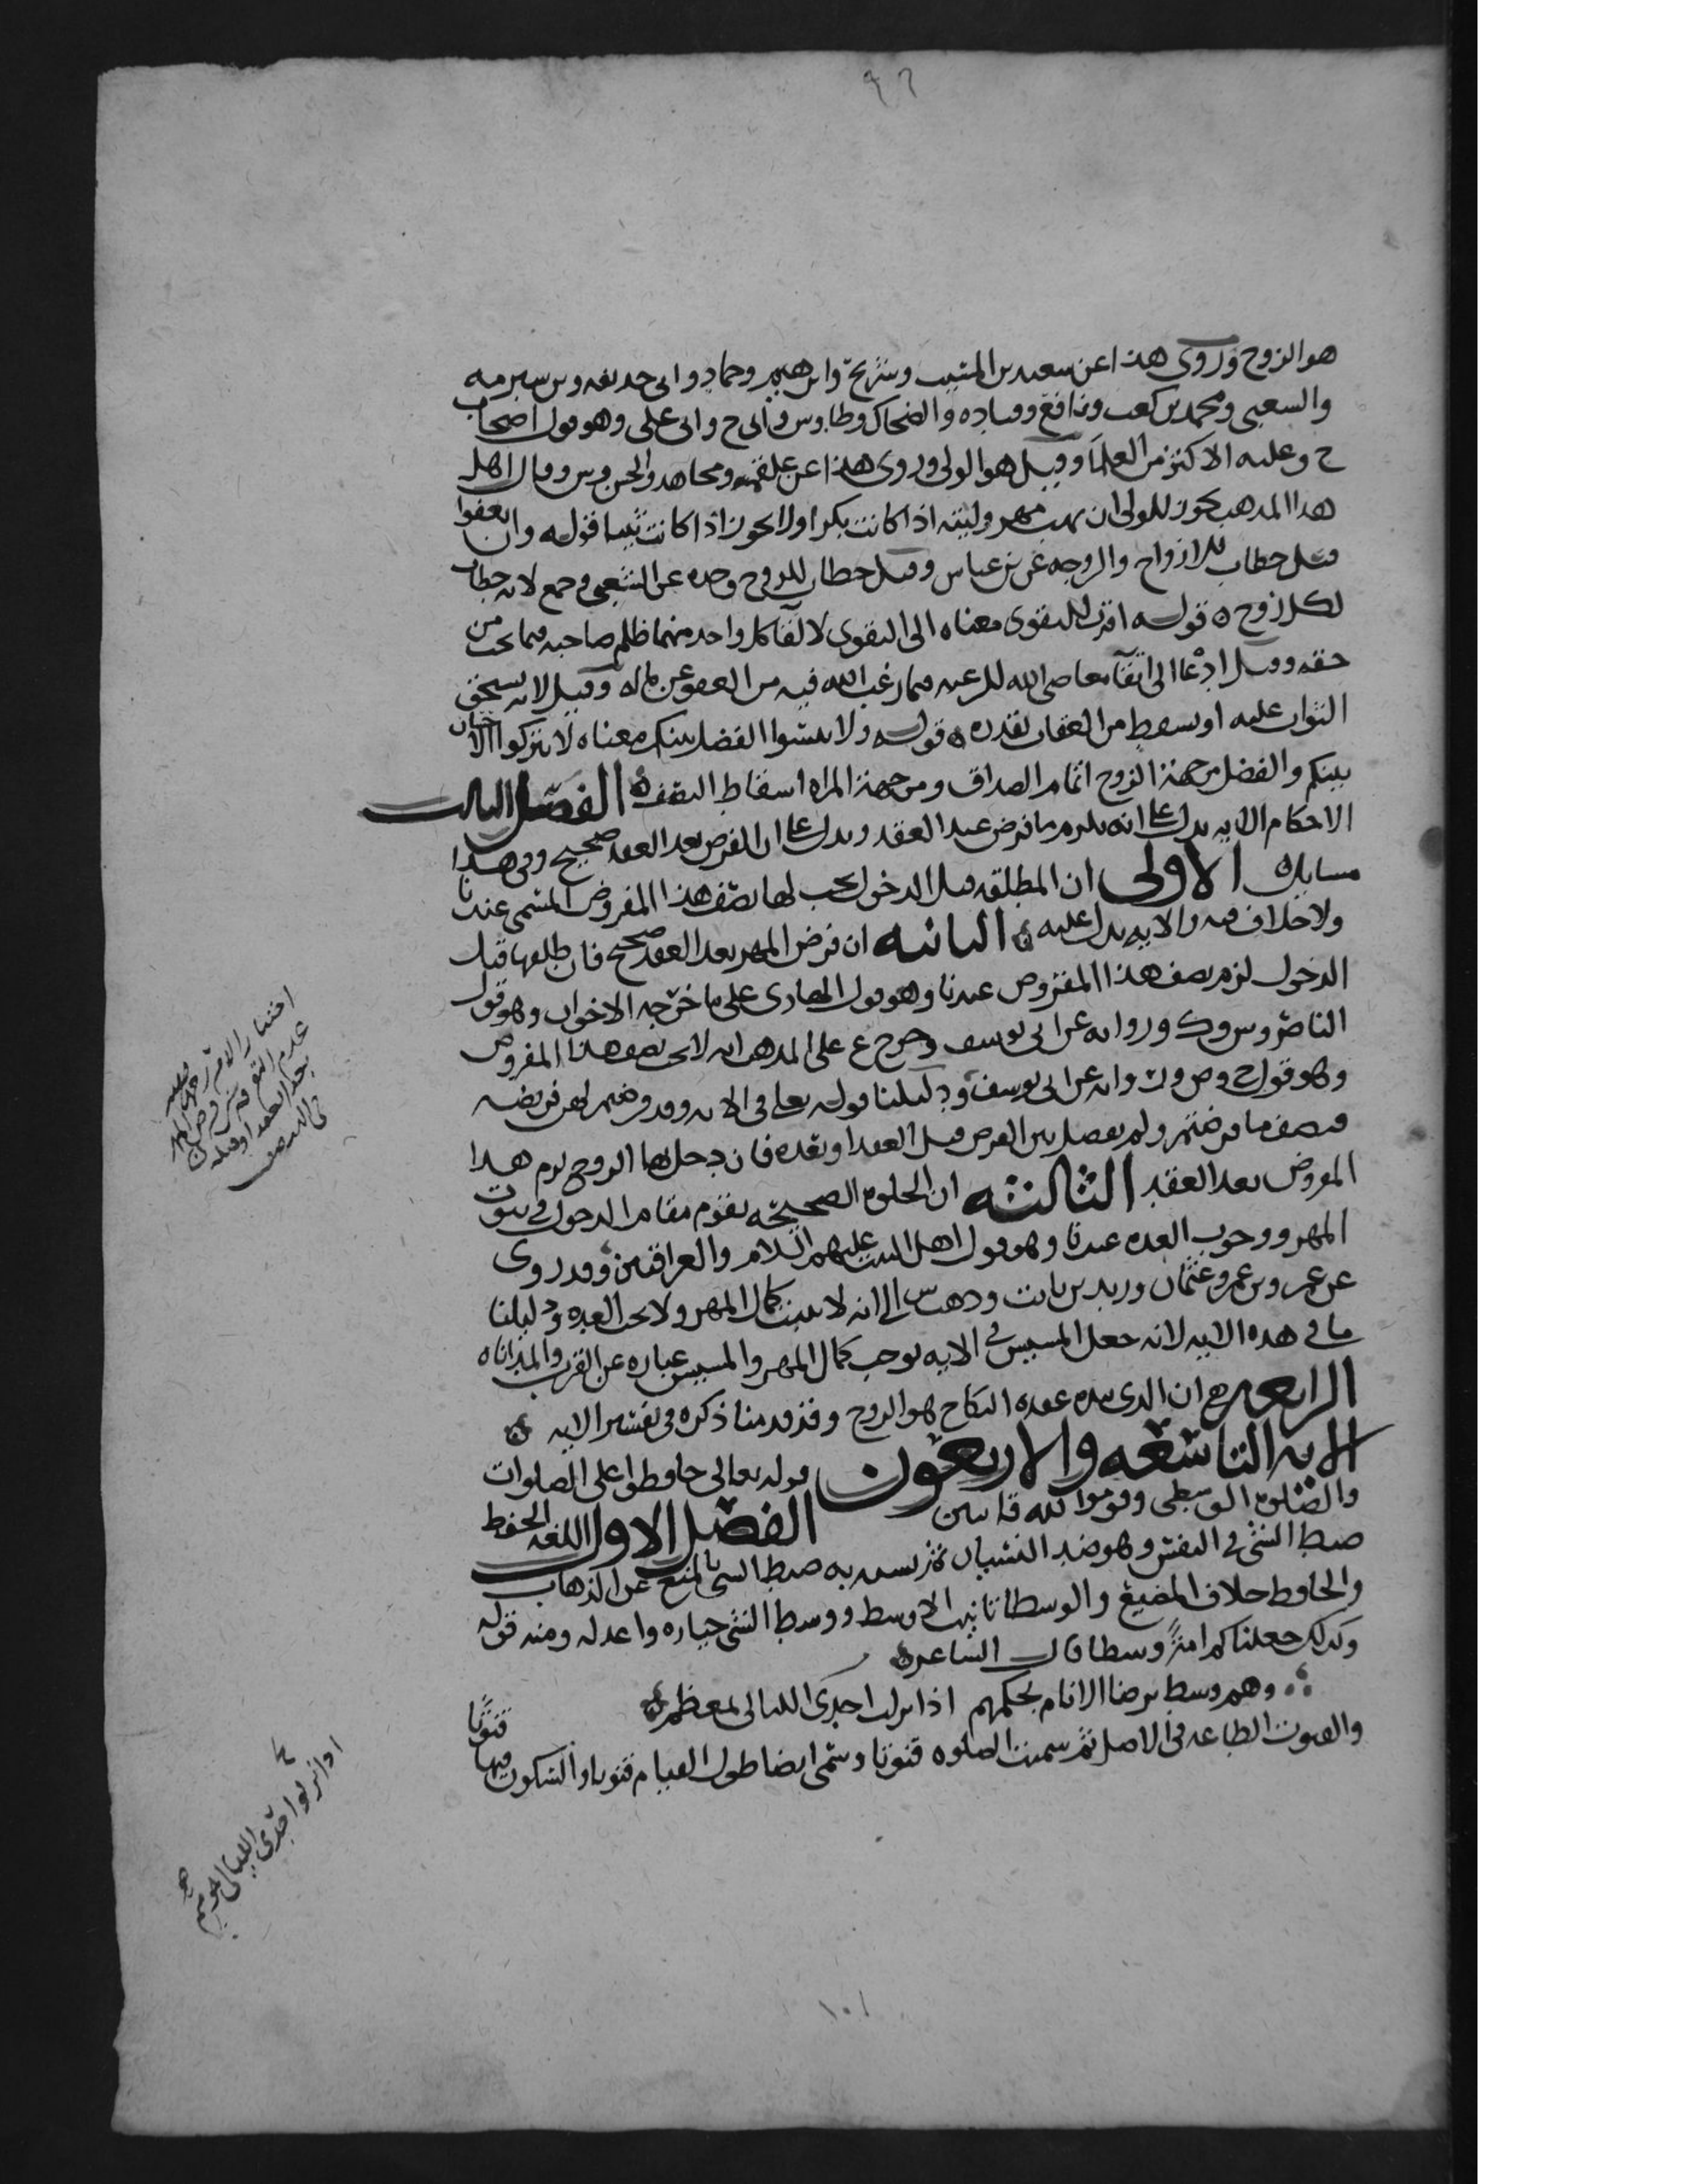 ٩٦
هو الزوج وروى هذا عن سعيد بن المسيب وشريح وابرهيم وحماد وابى حذيفه وبن شبرمه
والشعبى ومحمد بن كعب ونافع وقتاده والضحاك وطاوس و ابى ح وابى على وهو قول اصحاب
ح وعليه الاكثر من العلما وقيل هو الولى وروى هذا عن علقمه ومجاهد والحسن وش وقال اهل
هذا المذهب يجوز للولى ان يهب مهر وليته اذا كانت بكرا ولا يجوز اذا كانت ثيبا قوله وان تعفوا
قيل خطاب للازواج والزوجه عن بن عباس وقيل خطاب للزوج وحده عن الشعبى وجمع لانه خطاب
لكل زوج ه قوله اقرب للتقوى معناه الى التقوى لاتقا كل واحد منهما ظلم صاحبه مما يجب من
حقه وقيل ادعا الى اتقآ معاصى الله للرغبه فيما رغب الله فيه من العفو عن ماله وقيل لانه يستحق
الثواب عليه او يسقط من العقاب بقدره ه قوله ولا تنسوا الفضل بينكم معناه لا تتركوا الاحسان
بينكم والفضل من جهة الزوج اتمام الصداق ومن جهة المراه اسقاط النصف ه الفصل الثالث
الاحكام الايه تدل على انه يلزم ما فرض عند العقد وتدل على ان الفرض بعد العقد صحيح وفى هذا
مسايل الاولى ان المطلقه قبل الدخول يجب لها نصف هذا المفروض المسمى عندنا
ولا خلاف فيه والايه تدل عليه ه الثانيه ان فرض المهر بعد العقد صحيح فان طلقها قبل
الدخول لزم نصف هذا المفروض عندنا وهو قول الهادى على ما خرجه الاخوان وهو قول
الناصر وش وك وروايه عن ابى يوسف وخرج ع على المذهب انه لا يجب نصف هذا المفروض
وهو قول ح وص و روايه عن ابى يوسف ودليلنا قوله تعالى فى الايه وقد فرضتم لهن فريضه
فنصف ما فرضتم ولم يفصل بين الفرض قبل العقد او بعده فان دخل بها الزوج لزم هذا
المفروض بعد العقد الثالثه ان الخلوه الصحيحه تقوم مقام الدخول فى ثبوت
المهر ووجوب العده عندنا وهو قول اهل البيت عليهم السلام والعراقيين وقد روى
عن عمر وبن عمر وعثمان وزيد بن ثابت وذهب ش الى انه لا يثبت كمال المهر ولا يجب العده ودليلنا
ما فى هذه الايه لانه جعل المسيس فى الايه يوجب كمال المهر والمسيس عباره عن القرب والمداناه
الرابعه ان الذى بيده عقده النكاح هو الزوج وقد قدمنا ذكره فى تفسير الايه ه
الايه التاسعه والاربعون قوله تعالى حافظوا على الصلوات
والصلوه الوسطى وقوموا لله قانتين الفصل الاول اللغه الحفظ
ضبط الشى فى النفس وهو ضد النسيان ثم يشبه به ضبط الشى بالمنع عن الذهاب
والحافظ خلاف المضيع والوسطا تانيث الاوسط ووسط الشى خياره واعدله ومنه قوله
وكذلك جعلناكم امةً وسطا قال الشاعر ه
وهم وسط يرضا الانام بحكمهم اذا نزلت احدى الليالى بمعظم ه
والقنوت الطاعه فى الاصل ثم سميت الصلوه قنوتا وسمى ايضا طول القيام قنوتا والسكوت فيها قنوتًا
اختيار الامير رحمه الله
عدم التفرقه بين فرض المهر
بعد العقد او قبله
فى التنصيف
اذا نزلوا احدى الليالى
١٠١